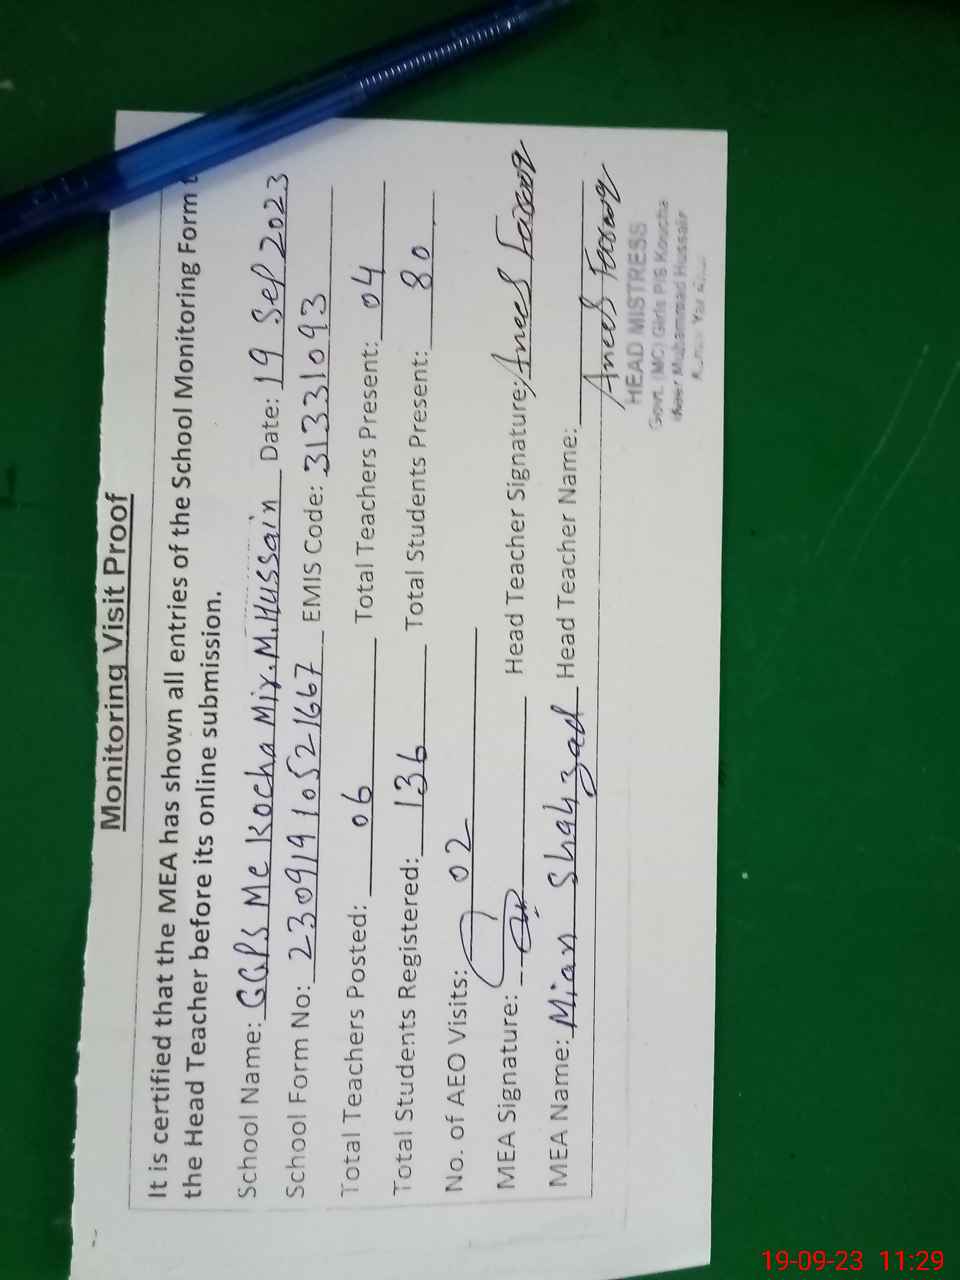 Monitoring Visit Proof
It is certified that the MEA has shown all entries of the School Monitoring Form t
the Head Teacher before its online submission.
School Name: GGPS Mc Kocha Mir.M.Hussain Date: 19 Sep 2023
School Form No: 23091910521667 EMIS Code: 31331093
Total Teachers Posted: 06 Total Teachers Present: 04
Total Students Registered: 136 Total Students Present: 80
No. of AEO Visits: 02
MEA Signature: Head Teacher Signature: Anees Farooq
MEA Name: Mian Shahzad Head Teacher Name: Anees Farooq
HEAD MISTRESS
Govt. (MC) Girls P/S Koucha
Muhammad Hussain
19-09-23 11:29